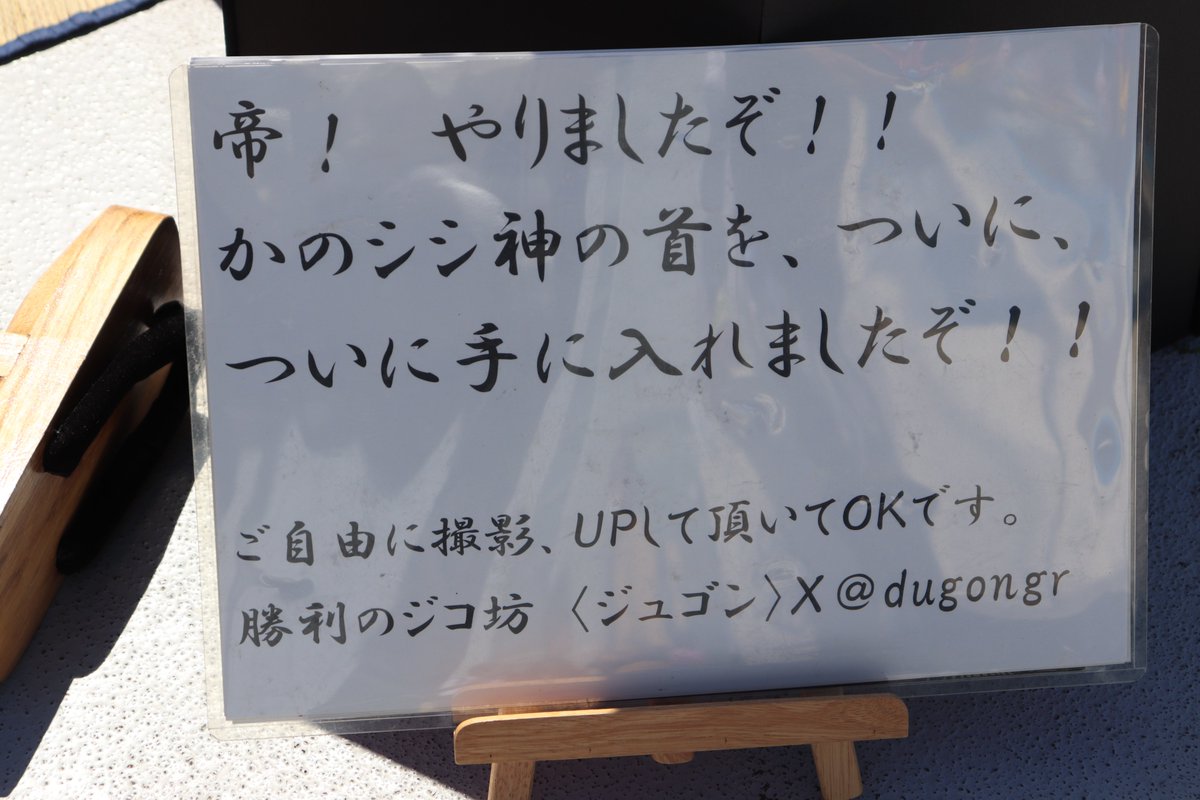 帝！　やりましたぞ！！
かのシシ神の首を、ついに、
ついに手に入れましたぞ！！
ご自由に撮影、UPして頂いてOKです。
勝利のジコ坊　〈ジュゴン〉X＠dugongr